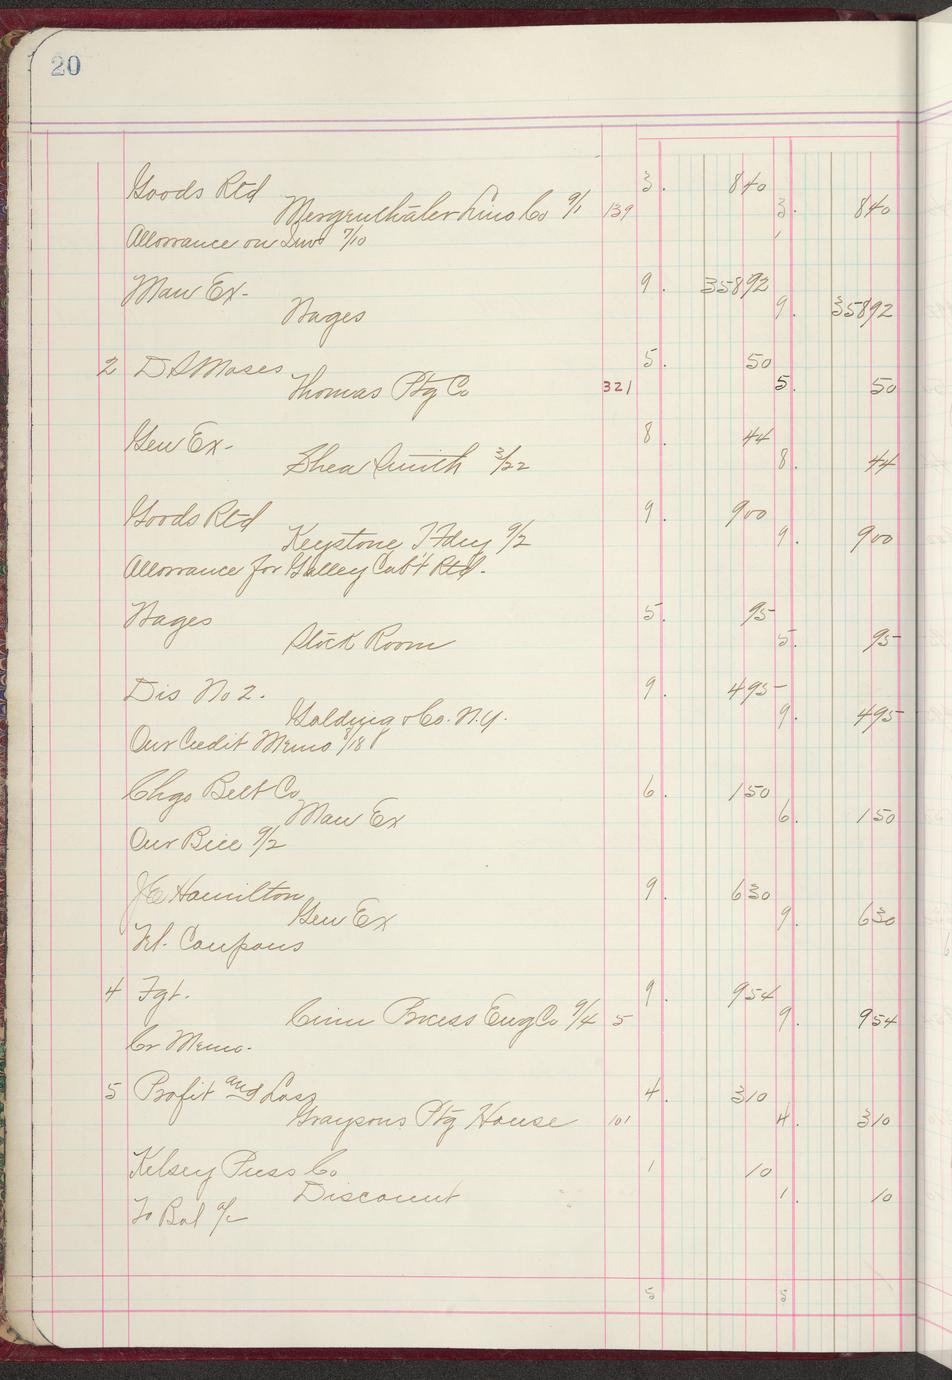 20
Goods Rtd 3. 840
Mergenthaler Lino Co 9/1 139 3. 840
Allowance on Inv 7/10
Man Ex- 9. 35892
Wages 9. 35892
2 D S Moses 5. 50
Thomas Ptg Co 321 5. 50
Gen Ex- 8. 44
Shea Smith 3/22 8. 44
Goods Rtd 9. 900
Keystone T Fdry 9/2 9. 900
Allowance for Galley Cab't Rtd.
Wages 5. 95
Stock Room 5. 95
Dis No 2. 9. 495
Golding & Co. N.Y. 9. 495
Our Credit Memo 8/18
Chgo Belt Co 6. 150
Man Ex 6. 150
Our Bill 9/2
Hamilton 9. 630
Gen Ex 9. 630
Coupons
4 Fgt. 9. 954
Cinn Process Eng Co 9/4 5 9. 954
Cr Memo.
5 Profit and Loss 4. 310
Graysons Ptg House 101 4. 310
Kelsey Press Co 1 10
Discount 1. 10
To Bal a/c
5 5